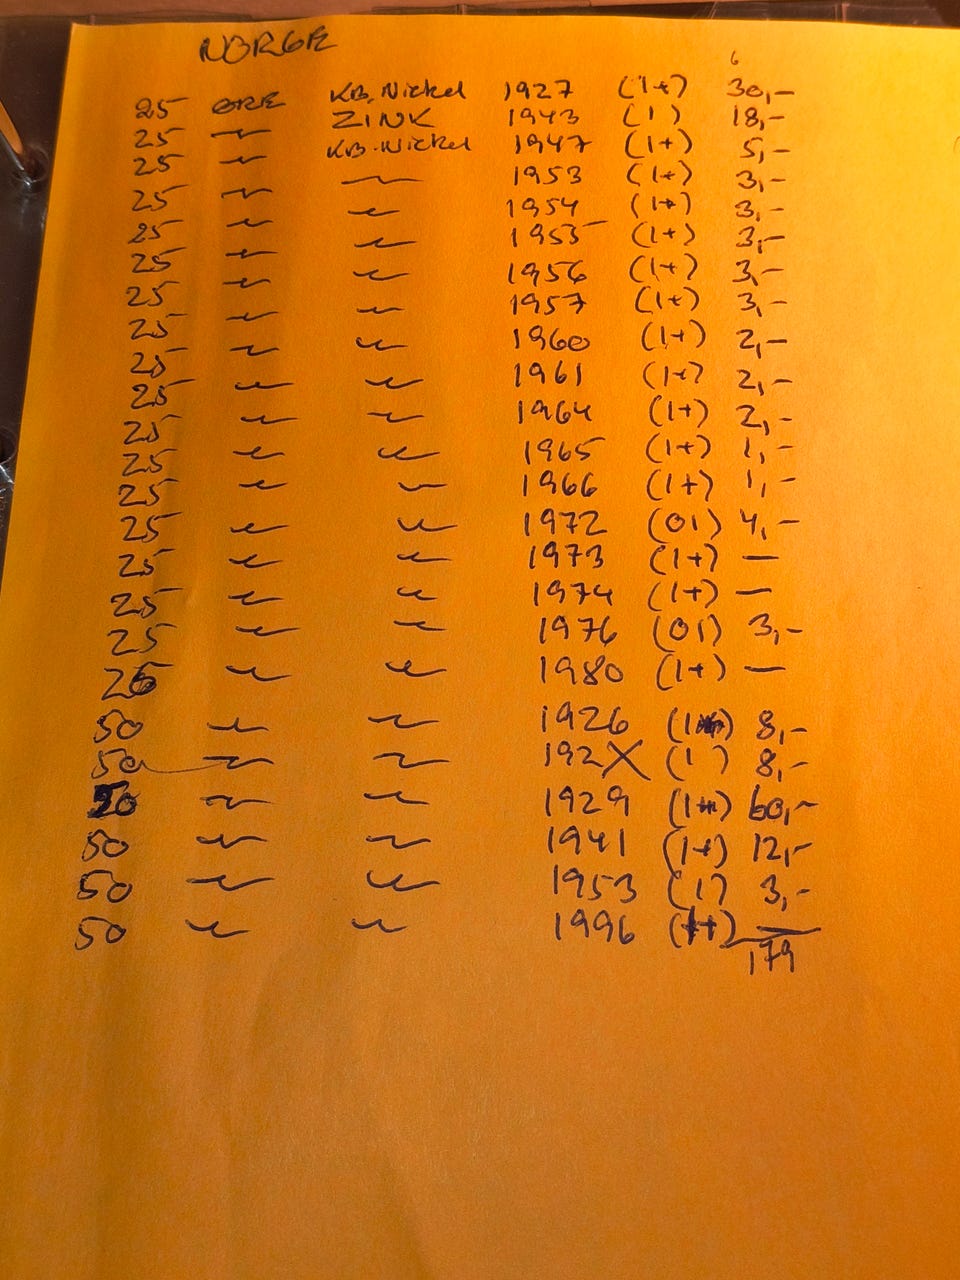 NORGE
6
25 ØRE KB.Nickel 1927 (1+) 30,-
25 〃 ZINK 1943 (1) 18,-
25 〃 KB.Nickel 1947 (1+) 5,-
25 〃 〃 1953 (1+) 3,-
25 〃 〃 1954 (1+) 3,-
25 〃 〃 1955 (1+) 3,-
25 〃 〃 1956 (1+) 3,-
25 〃 〃 1957 (1+) 3,-
25 〃 〃 1960 (1+) 2,-
25 〃 〃 1961 (1+) 2,-
25 〃 〃 1964 (1+) 2,-
25 〃 〃 1965 (1+) 1,-
25 〃 〃 1966 (1+) 1,-
25 〃 〃 1972 (01) 4,-
25 〃 〃 1973 (1+) —
25 〃 〃 1974 (1+) —
25 〃 〃 1976 (01) 3,-
25 〃 〃 1980 (1+) —
50 〃 〃 1926 (1) 8,-
50 〃 〃 192X (1) 8,-
50 〃 〃 1929 (1+) 60,-
50 〃 〃 1941 (1+) 12,-
50 〃 〃 1953 (1) 3,-
50 〃 〃 1996 (1+) —
179